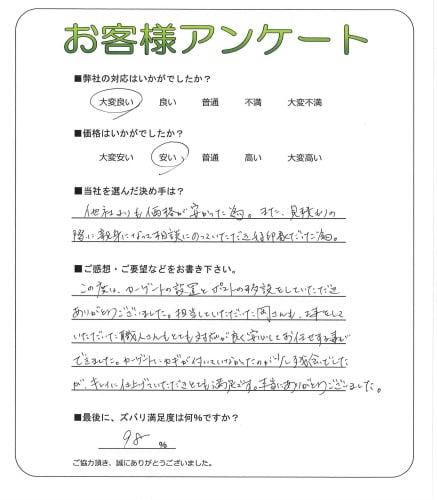 お客様アンケート
■弊社の対応はいかがでしたか？
大変良い 良い 普通 不満 大変不満
■価格はいかがでしたか？
大変安い 安い 普通 高い 大変高い
■当社を選んだ決め手は？
他社よりも価格が安かった為。また、見積もりの
際に親身になって相談にのっていただき好印象だった為。
■ご感想・ご要望などをお書き下さい。
この度は、カーゲートの設置とポストの移設をしていただき
ありがとうございました。担当していただいた岡さんも、お手をして
いただいた職人さんもとても対応が良く安心してお任せする事が
できました。カーゲートにカギが付いていなかったのが少し残念でした
が、キレイに仕上げていただきとても満足です。本当にありがとうございました。
■最後に、ズバリ満足度は何％ですか？
98 %
ご協力頂き、誠にありがとうございました。